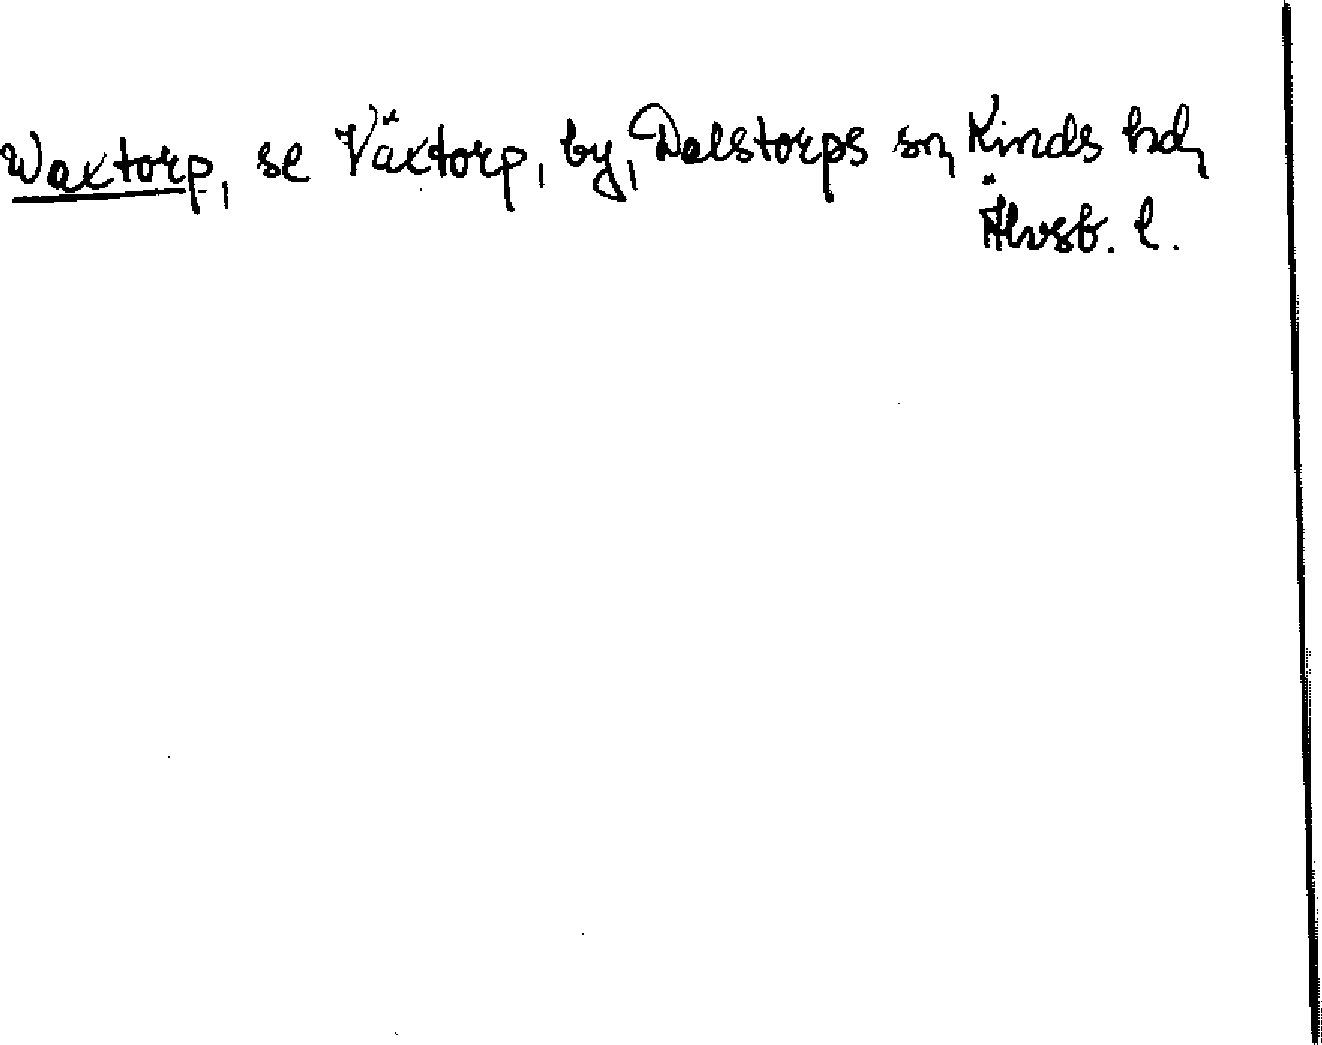 Waxtorp, se Växtorp, by, Dalstorps sn, Kinds hd,
Älvsb. l.